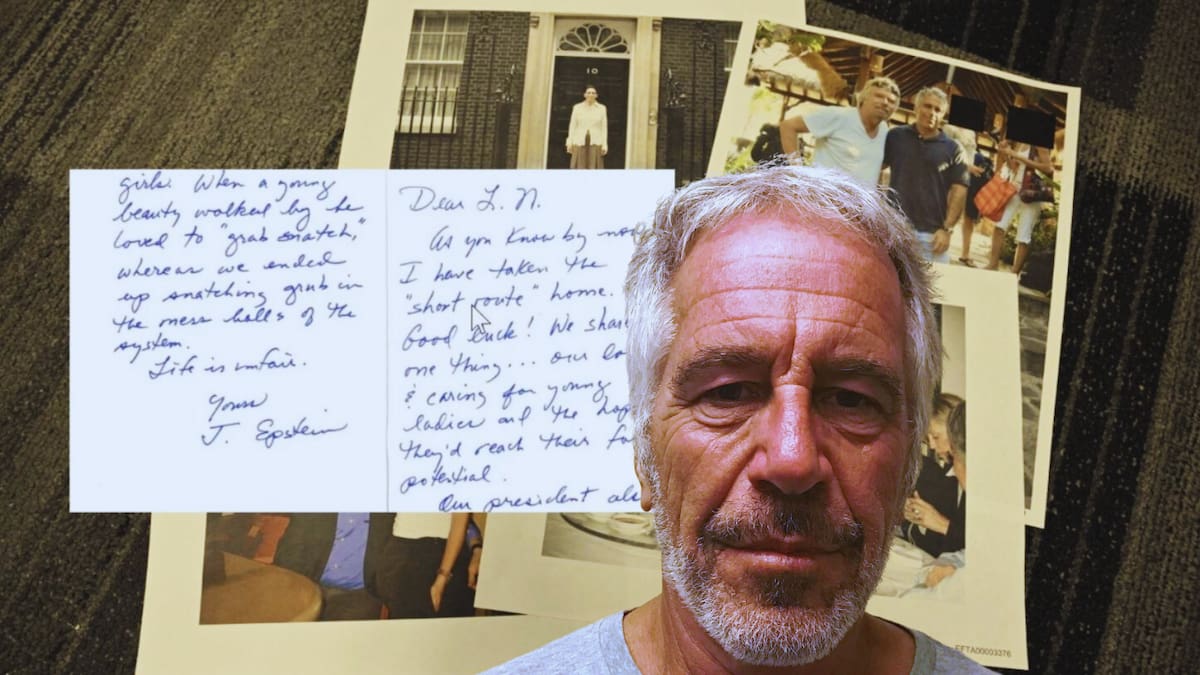 10
girls. When a young
beauty walked by he
loved to "grab snatch,"
whereas we ended
up snatching grub in
the mess halls of the
system.
Life is unfair.
Yours
J. Epstein
Dear L. N.
As you know by now
I have taken the
"short route" home.
Good luck! We share
one thing... our lo
& caring for young
ladies and the hop
they'd reach their fu
potential.
Our president als
EFTA00003376